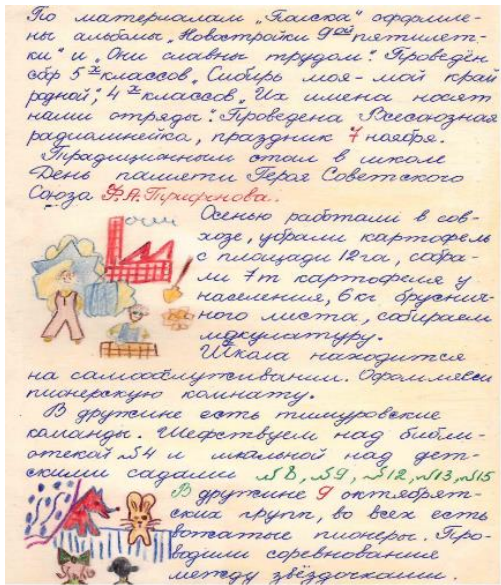 По материалам „Поиска" оформле-
ны альбомы „Новостройки 9ой пятилет-
ки" и „Они славны трудом". Проведён
сбор 5х классов „Сибирь моя - мой край
родной", 4х классов „Их имена носят
наши отряды". Проведена Всесоюзная
радиолинейка, праздник 7 ноября.
Традиционным стал в школе
День памяти Героя Советского
Союза Ф.А. Трифонова.
Осенью работали в сов-
хозе, убрали картофель
с площади 12 га, собра-
ли 7т картофеля у
населения, 6 кг бруснич-
ного листа, собираем
макулатуру.
Школа находится
на самообслуживании. Оформляем
пионерскую комнату.
В дружине есть тимуровские
команды. Шефствуем над библи-
отекой №4 и школьной над дет-
скими садами №8, №9, №12, №13, №15
В дружине 9 октябрят-
ских групп, во всех есть
вожатые пионеры. Про-
водили соревнования
между звёздочками.